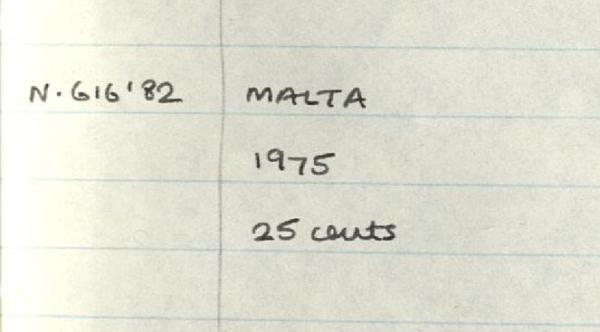 N.616'82 MALTA
1975
25 cents